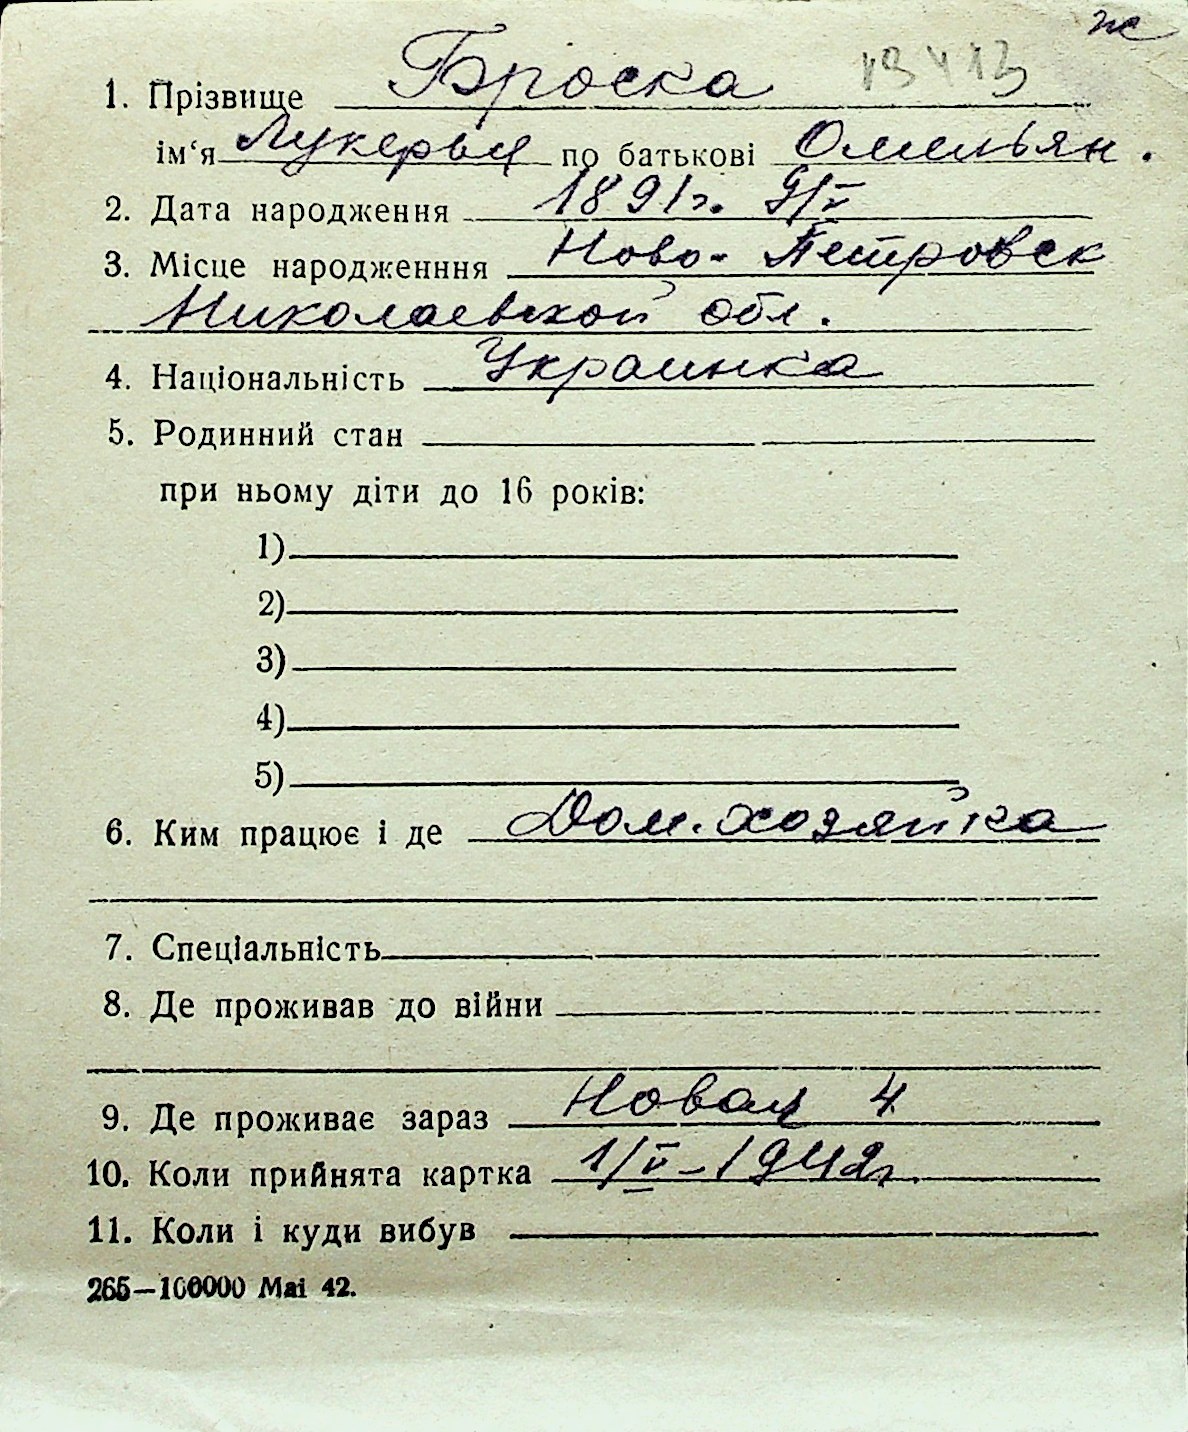 ж
13413
1. Прізвище Броска
ім‘я Лукерья по батькові Омельян.
2. Дата народження 1891г. 9/V
3. Місце народженння Ново-Петровск
Николаевской обл.
4. Національність Украинка
5. Родинний стан
при ньому діти до 16 років:
1)
2)
3)
4)
5)
6. Ким працює і де Дом. хозяйка
7. Спеціальність
8. Де проживав до війни
9. Де проживає зараз Новая 4
10. Коли прийнята картка 1/V-1942г.
11. Коли і куди вибув
265—100000 Mai 42.